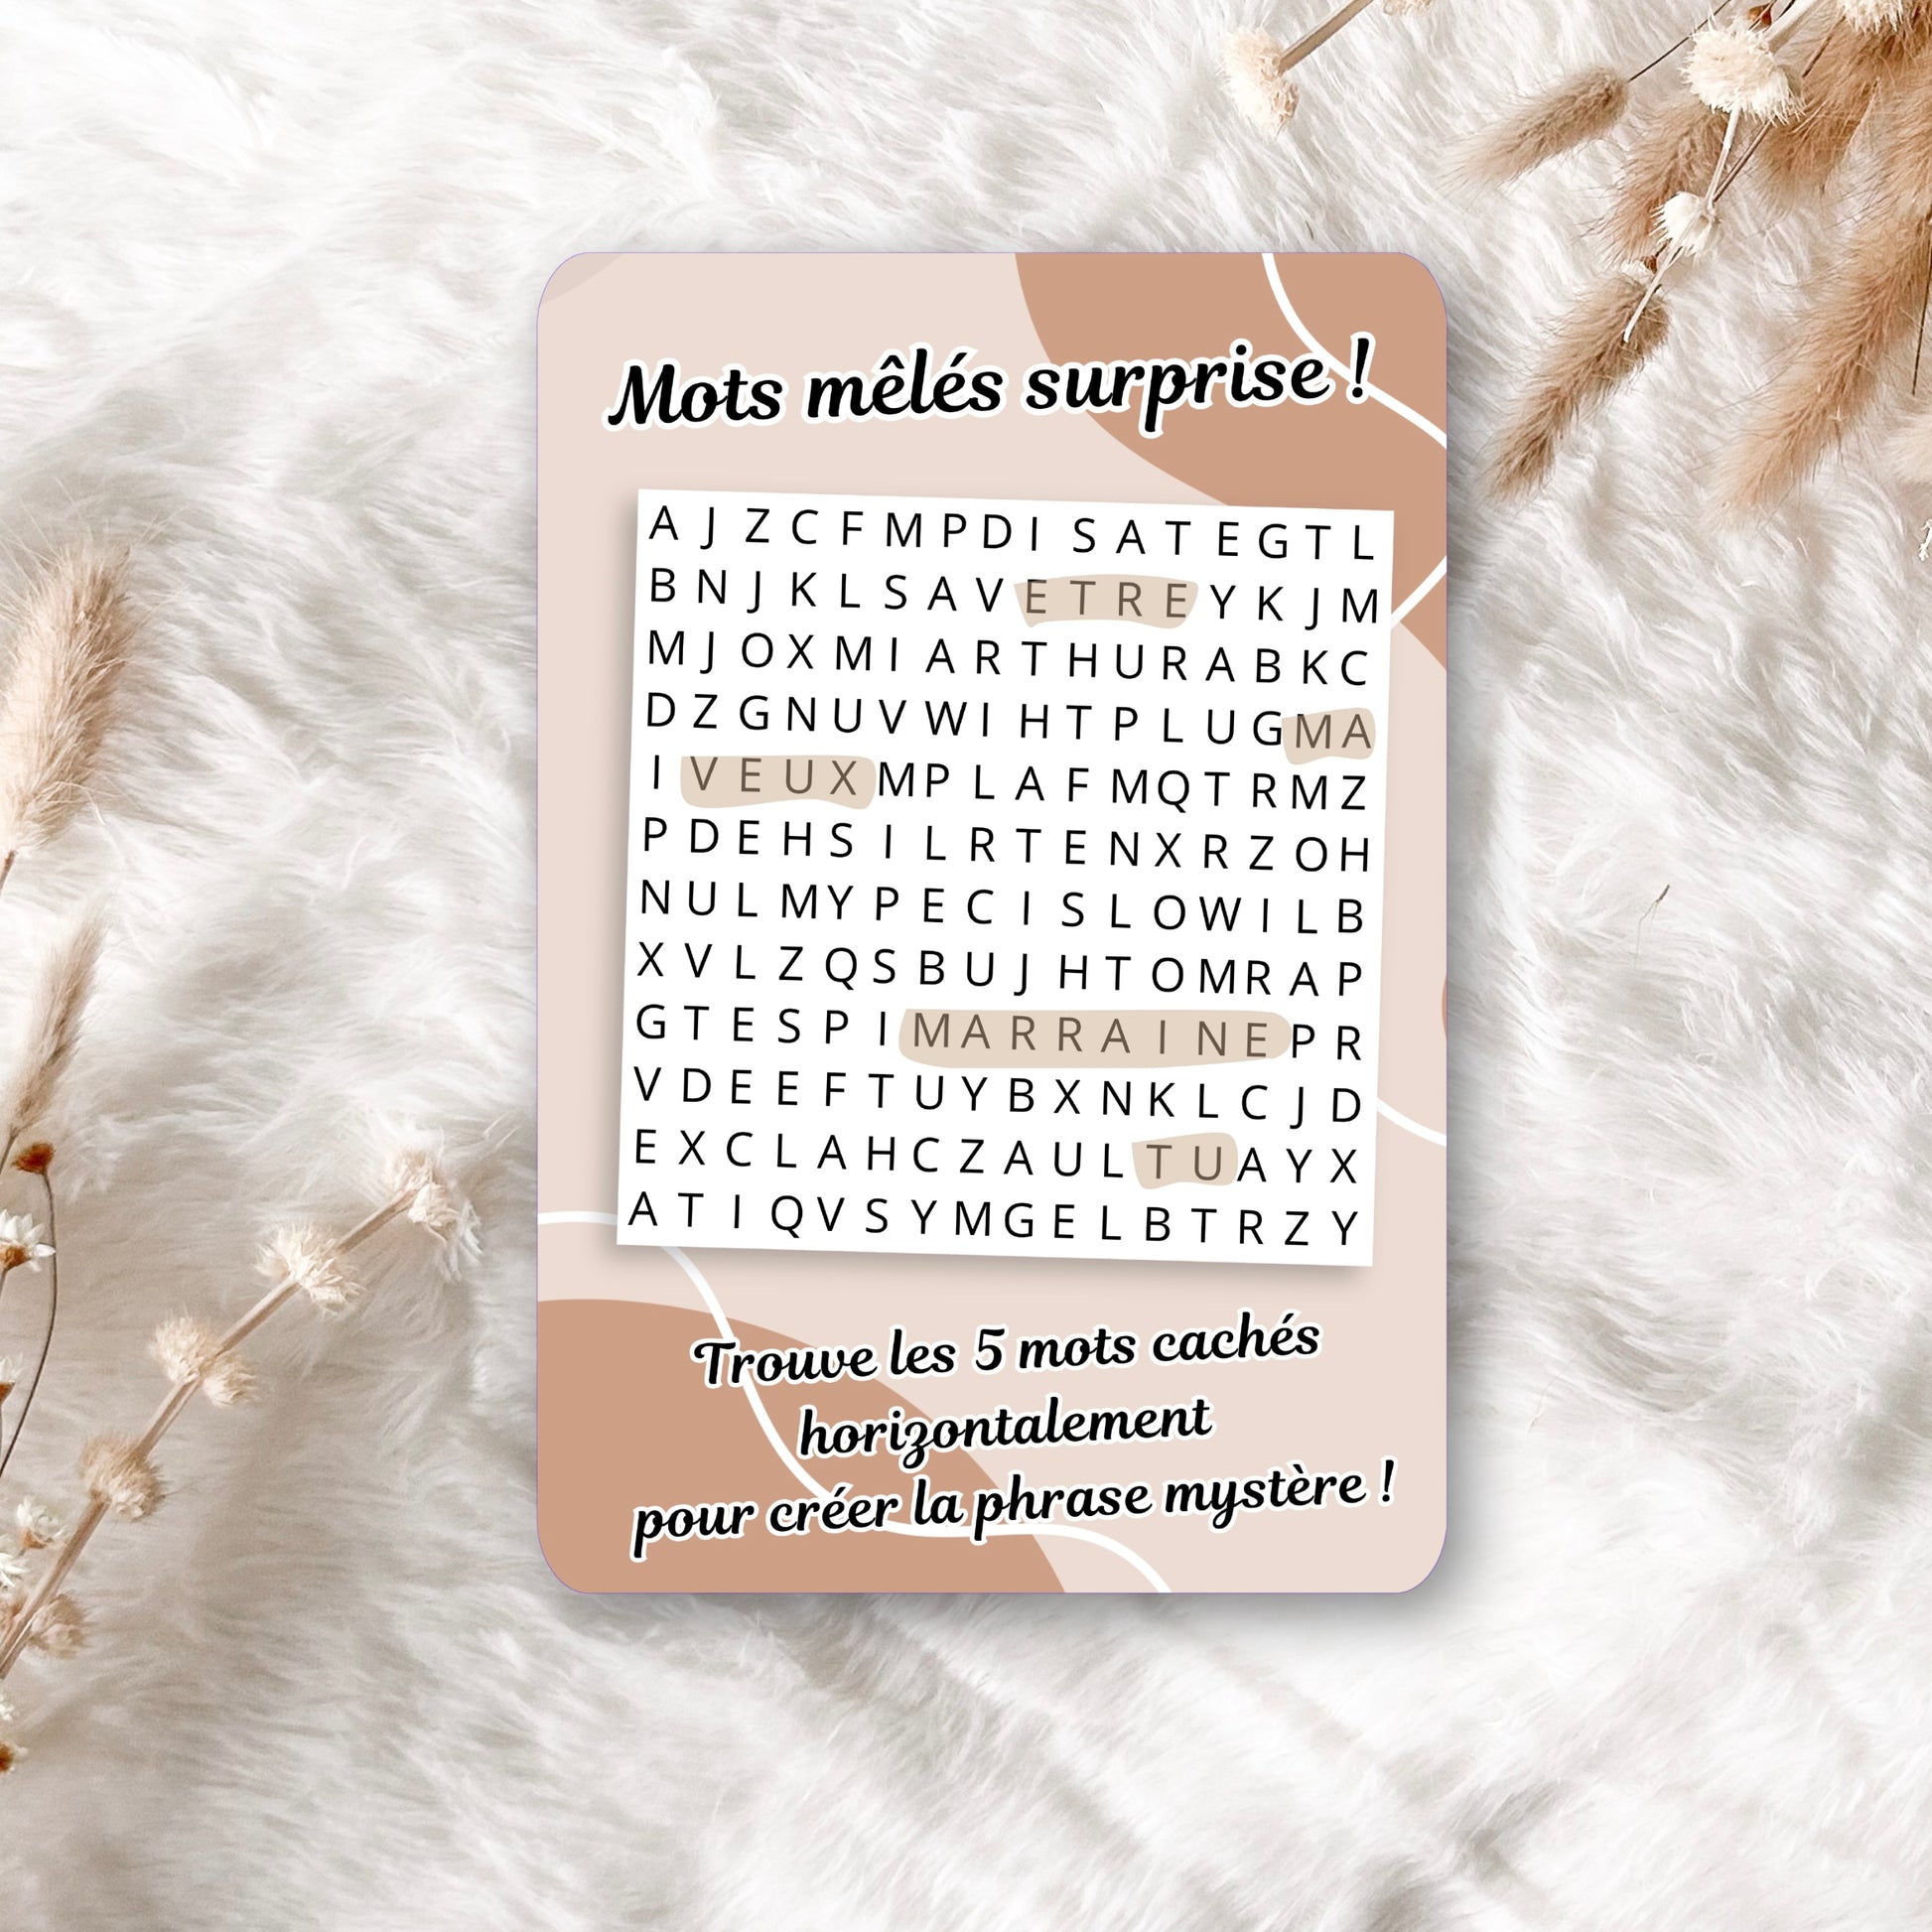 Mots mêlés surprise !
A J Z C F M P D I S A T E G T L
B N J K L S A V E T R E Y K J M
M J O X M I A R T H U R A B K C
D Z G N U V W I H T P L U G M A
I V E U X M P L A F M Q T R M Z
P D E H S I L R T E N X R Z O H
N U L M Y P E C I S L O W I L B
X V L Z Q S B U J H T O M R A P
G T E S P I M A R R A I N E P R
V D E E F T U Y B X N K L C J D
E X C L A H C Z A U L T U A Y X
A T I Q V S Y M G E L B T R Z Y
Trouve les 5 mots cachés
horizontalement
pour créer la phrase mystère !